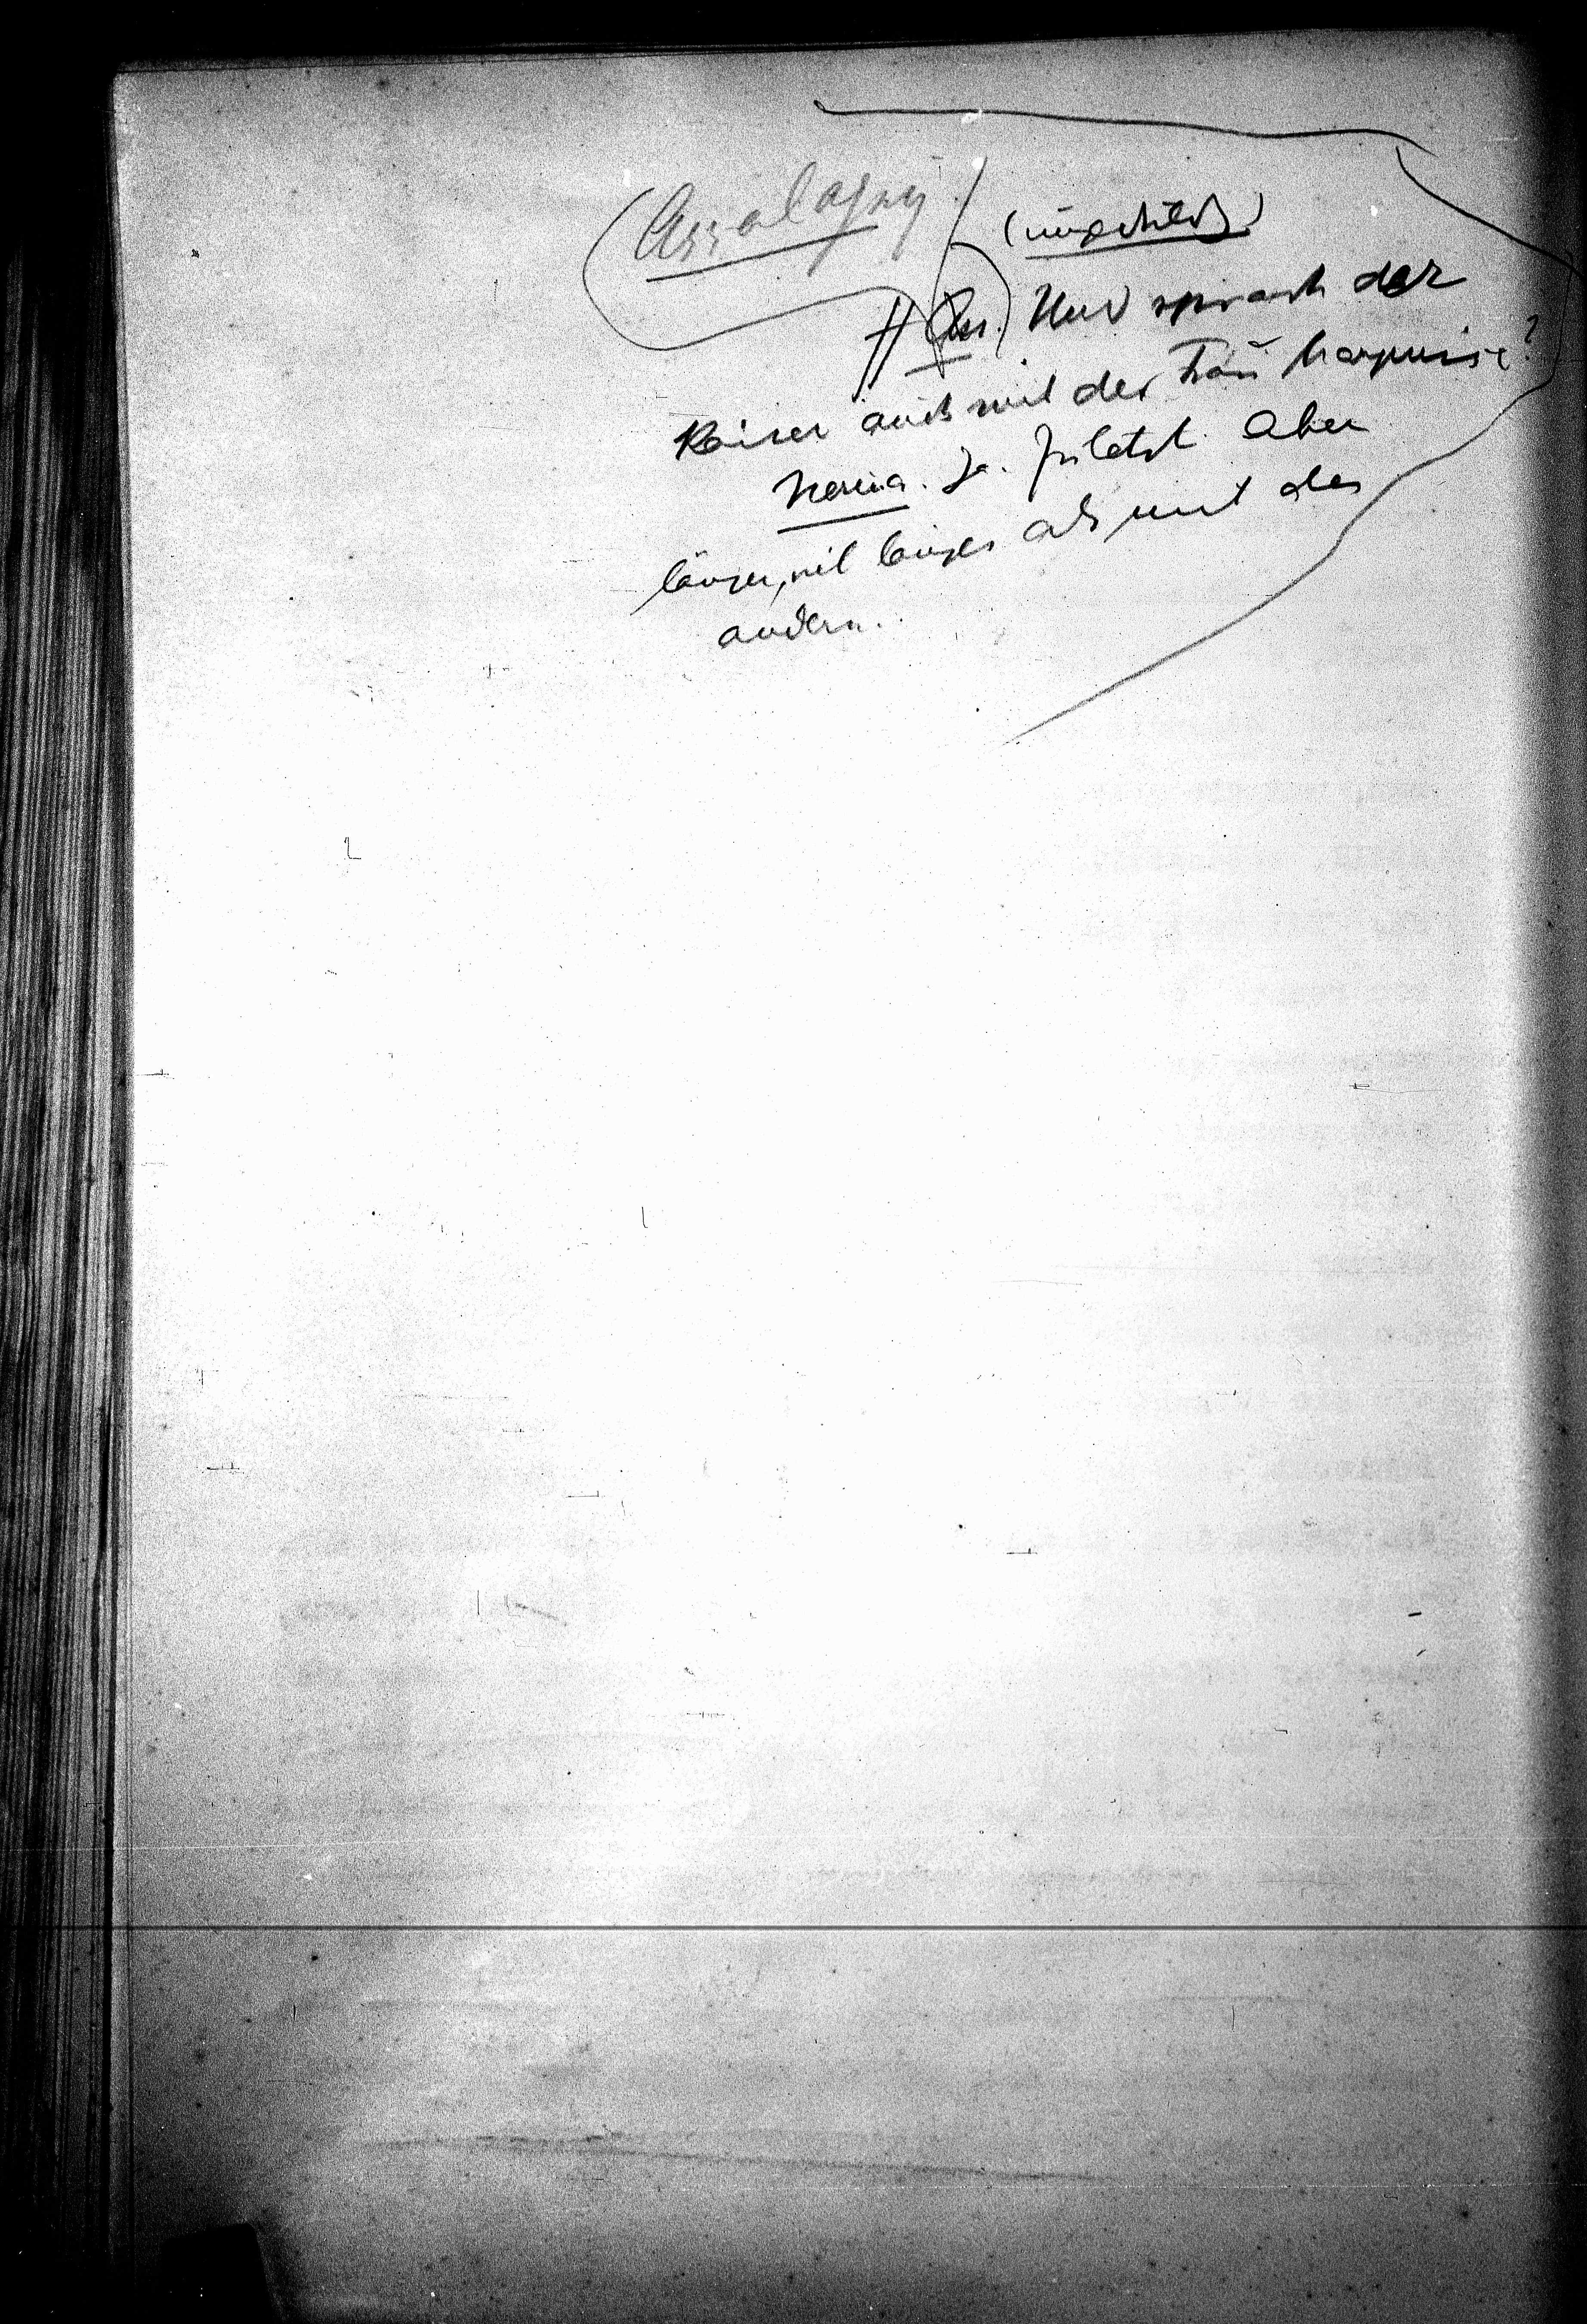 Assalagny
(ungeduldig)
Ass. Und sprach der
Kaiser auch mit der Frau Marquise?
Nerina. Ja. Zuletzt. Aber
länger, viel länger als mit den
andern.